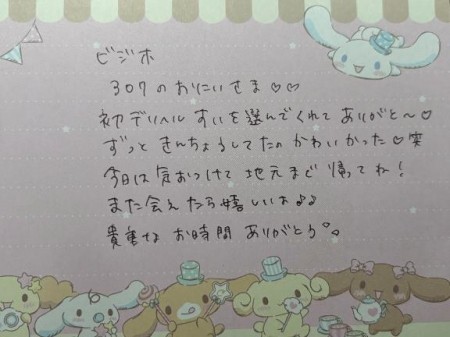 ビジホ
307のおにいさま♡♡
初デリヘル すいを選んでくれて ありがと〜♡
ずっと きんちょうしてたの かわいかった♡笑
今日は気おつけて 地元まで 帰ってね!
また会えたら嬉しいよ♪♪
貴重な お時間 ありがとう